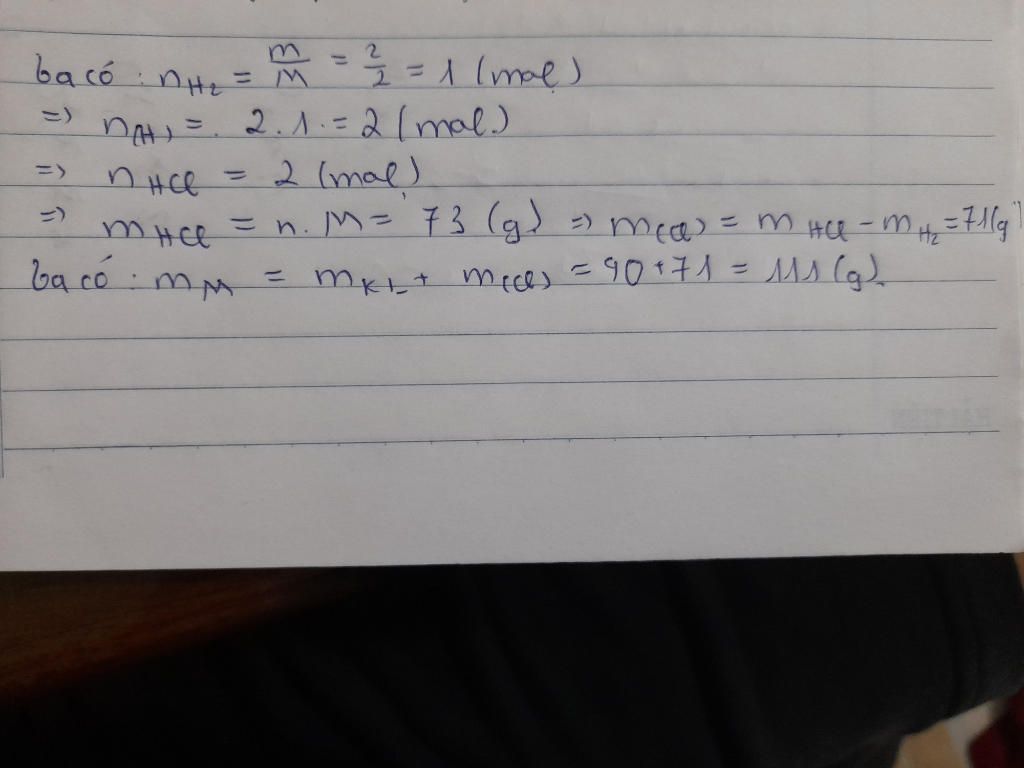 ta có : n H2 = m/M = 2/2 = 1 (mol)
=> n(H) = 2.1 = 2 (mol)
=> n HCl = 2 (mol)
=> m HCl = n.M = 73 (g) => m(Cl) = m HCl - m H2 = 71(g)
ta có : m M = m KL + m(Cl) = 40+71 = 111 (g).